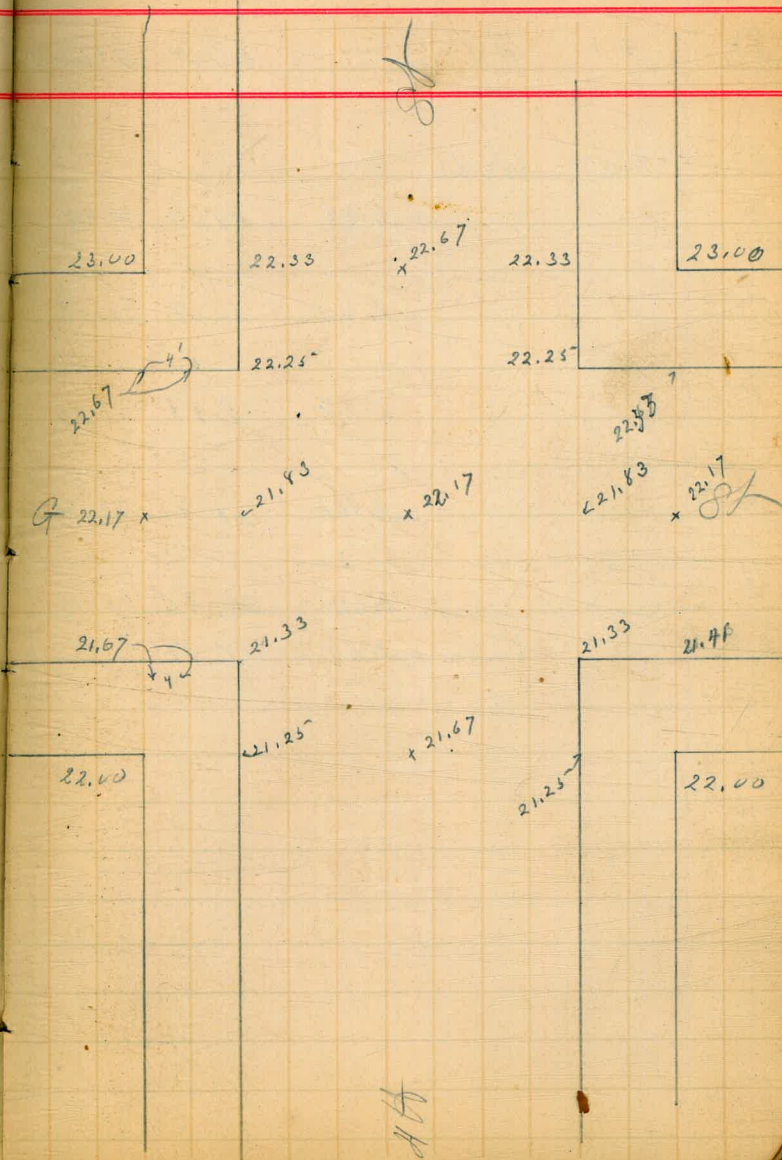 St
23.00 22.33 22.67 22.33 23.00
4' 22.25 22.25
22.67
21.83 22.17 21.83 22.17
G 22.17 St
21.67 21.33 21.33
4
21.25 21.67 21.25
22.00 22.00
4th